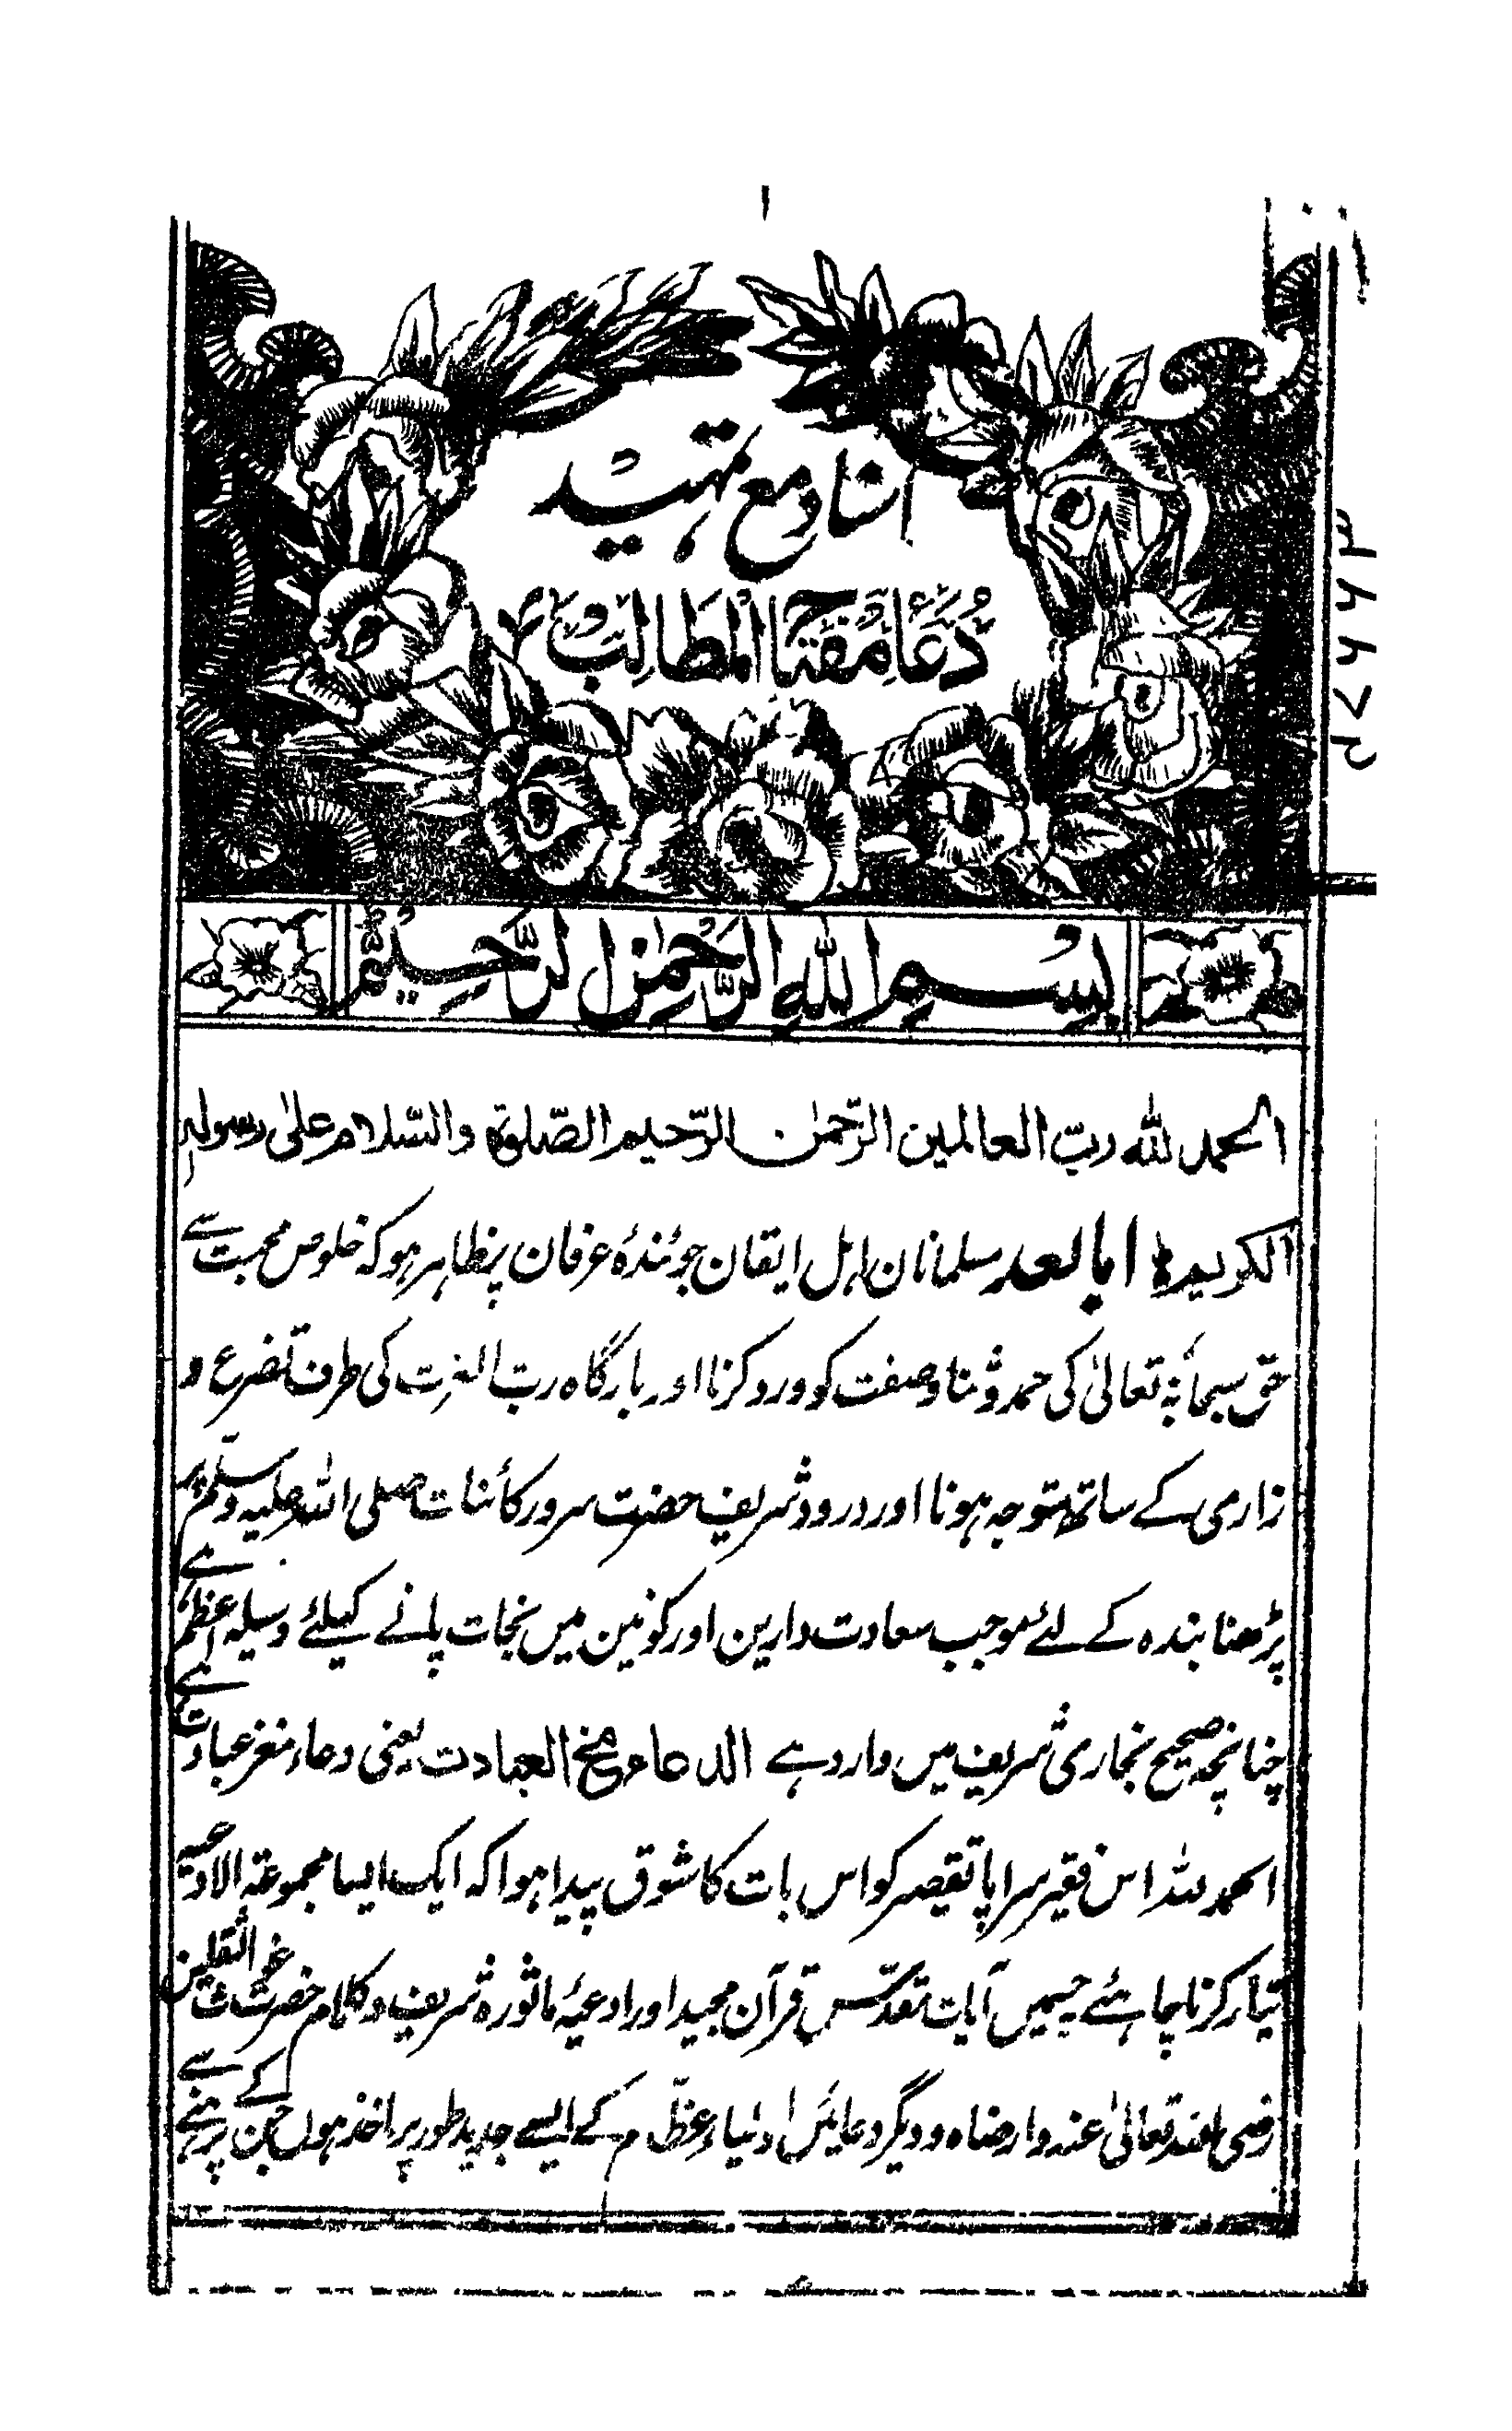 ۱
اسناد مع تمہید
دُعَا مِفتَاحُ الْمَطَالِب
بِسْمِ اللهِ الرَّحْمٰنِ الرَّحِيْمِ
الحمد لله ربّ العالمین الرّحمٰن الرّحیم الصّلوة والسّلام علیٰ رسولہٖ
الکریم ط اما بعد مسلمانان اہل ایقان جوئندۂ عرفان پر ظاہر ہو کہ خلوص محبت سے
حق سبحانہٗ تعالیٰ کی حمد و ثنا و صفت کو ورد کرنا اور بارگاہ رب العزت کی طرف تضرع و
زاری کے ساتھ متوجہ ہونا اور درود شریف حضرت سرور کائنات صلی اللہ علیہ وسلّم پر
پڑھنا بندہ کے لئے موجب سعادت دارین اور کونین میں نجات پانے کیلئے وسیلہ عظمٰے ہے
چنانچہ صحیح بخاری شریف میں وارد ہے الدعاء مخ العبادت یعنی دعاء مغز عبادت ہے
الحمد للہ اس فقیر سراپا تقصیر کو اس بات کا شوق پیدا ہوا کہ ایک ایسا مجموعۃ الادعیہ
تیار کرنا چاہئے جسمیں آیات مقدّس قرآن مجید اور ادعیۂ ماثورہ شریف و کلام حضرت غوث الثقلین
رضی اللہ تعالیٰ عنہ وارضاہ و دیگر دعائیں اولیاء عظّام کے ایسے جدید طور پر اخذ ہوں جن کے پڑہنے سے
۲۷۷۳